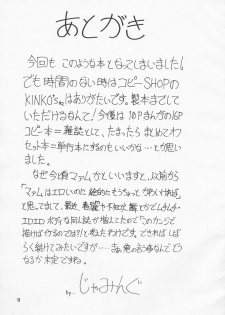 あとがき
今回も このような本となってしまいました!
でも時間のない時はコピーSHOPの
KINKO'sはありがたいです。製本までして
いただけるなんて! 今後は10Pまんがの16P
コピー本=雑誌として、たまったら まとめてオフ
セット本=単行本にするのもいいかな…とか思い
ました。
なぜ今頃マァムかというと、以前から
「マァムはエロいのに 絵的にもうちょっとかわいければ」
と思ってまして、最近 不知火舞とかでムチムチ・
エロエロ ボディな同人誌が増えてたので「このカンジで
描けば行るのでは!?」と考えたわけです。できればしば
らく続けてみたいですが…
なるか未定ですね。
by. じゃみんぐ